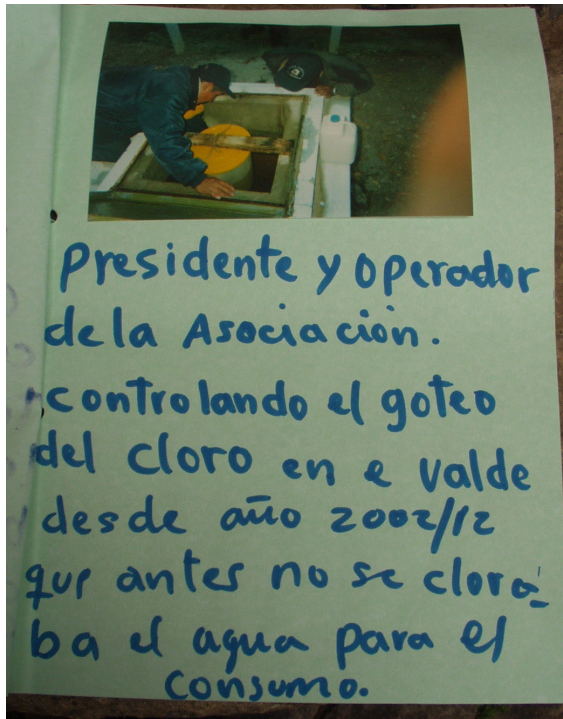 Presidente y operador
de la Asociación.
controlando el goteo
del cloro en e valde
desde año 2002/12
que antes no se clora-
ba el agua para el
consumo.